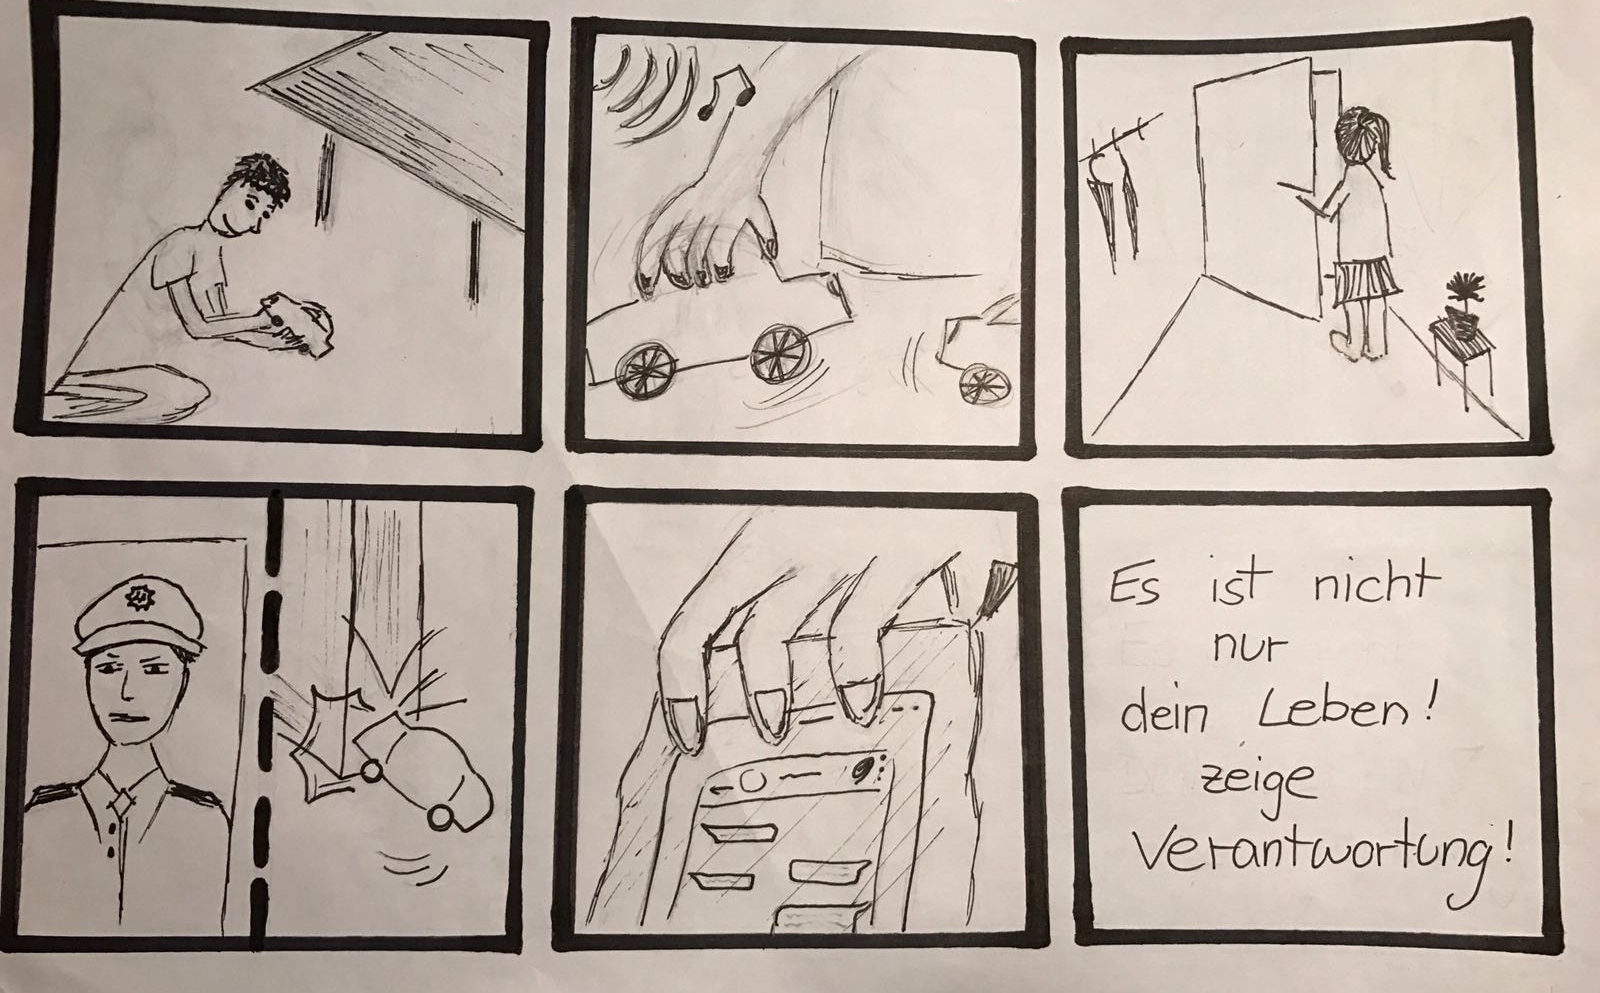 Es ist nicht
nur
dein Leben!
zeige
Verantwortung!